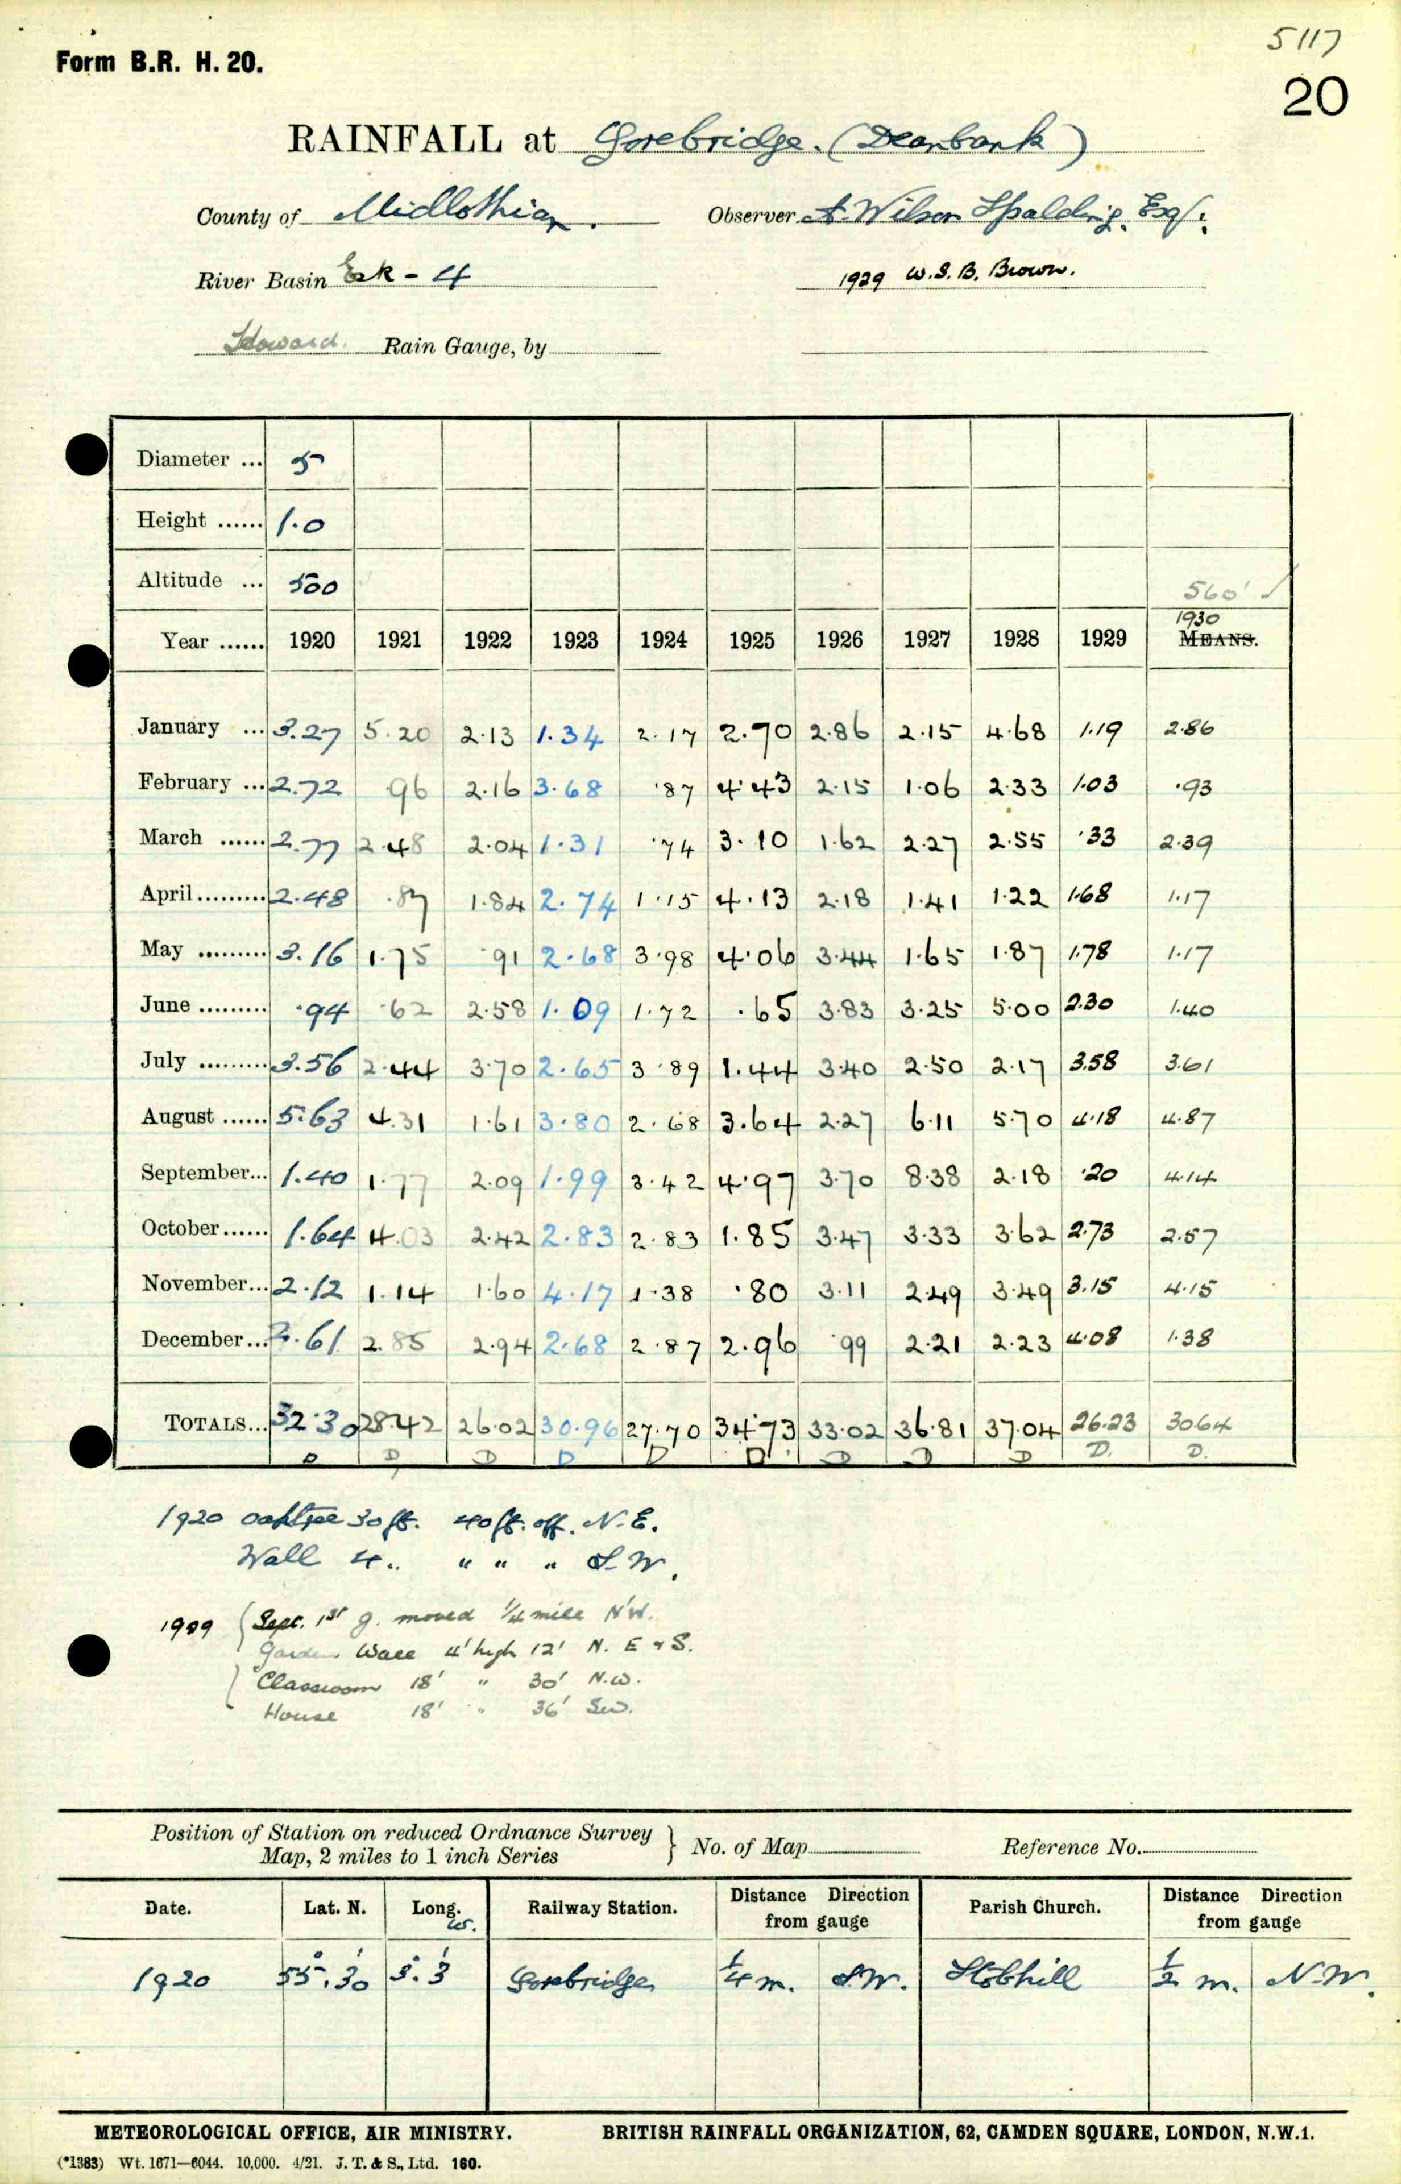 5117
Form B.R. H. 20.
20
RAINFALL at Gorebridge. (Deanbank)
County of Midlothian. Observer A. Wilson Spalding, Esq.
River Basin Esk - 4 1929 W.S.B. Brown.
Howard. Rain Gauge, by
Diameter ... 5
Height ...... 1.0
Altitude ... 500 560' ✓
1930
Year ...... 1920 1921 1922 1923 1924 1925 1926 1927 1928 1929 MEANS.
January ... 3.27 5.20 2.13 1.34 2.17 2.70 2.86 2.15 4.68 1.19 2.86
February ... 2.72 96 2.16 3.68 .87 4.43 2.15 1.06 2.33 1.03 .93
March ...... 2.77 2.48 2.04 1.31 .74 3.10 1.62 2.27 2.55 .33 2.39
April ......... 2.48 .87 1.84 2.74 1.15 4.13 2.18 1.41 1.22 1.68 1.17
May ......... 3.16 1.75 91 2.68 3.98 4.06 3.44 1.65 1.87 1.78 1.17
June ......... .94 .62 2.58 1.09 1.72 .65 3.83 3.25 5.00 2.30 1.40
July ......... 3.56 2.44 3.70 2.65 3.89 1.44 3.40 2.50 2.17 3.58 3.61
August ...... 5.63 4.31 1.61 3.80 2.68 3.64 2.27 6.11 5.70 4.18 4.87
September... 1.40 1.77 2.09 1.99 3.42 4.97 3.70 8.38 2.18 .20 4.14
October...... 1.64 4.03 2.42 2.83 2.83 1.85 3.47 3.33 3.62 2.73 2.57
November... 2.12 1.14 1.60 4.17 1.38 .80 3.11 2.49 3.49 3.15 4.15
December... 2.61 2.85 2.94 2.68 2.87 2.96 .99 2.21 2.23 4.08 1.38
TOTALS... 32.30 28.42 26.02 30.96 27.70 34.73 33.02 36.81 37.04 26.23 30.64
D D D D D D D D D D. D.
1920 oaktree 30 ft. 40 ft. off. N.E.
Wall 4 .. " " " S.W.
1929 Sept. 1st g. moved 1/4 mile NW.
Garden Wall 4' high 12' N. E & S.
Classroom 18' " 30' N.W.
House 18' " 36' SW.
Position of Station on reduced Ordnance Survey
Map, 2 miles to 1 inch Series } No. of Map Reference No.
Date. Lat. N. Long. W. Railway Station. Distance Direction from gauge Parish Church. Distance Direction from gauge
1920 55°.30' 3°.3' Gorebridge 1/4 m. S.W. Stobhill 1/2 m. N.W.
METEOROLOGICAL OFFICE, AIR MINISTRY. BRITISH RAINFALL ORGANIZATION, 62, CAMDEN SQUARE, LONDON, N.W.1.
(*1383) Wt. 1671—6044. 10,000. 4/21. J. T. & S., Ltd. 160.